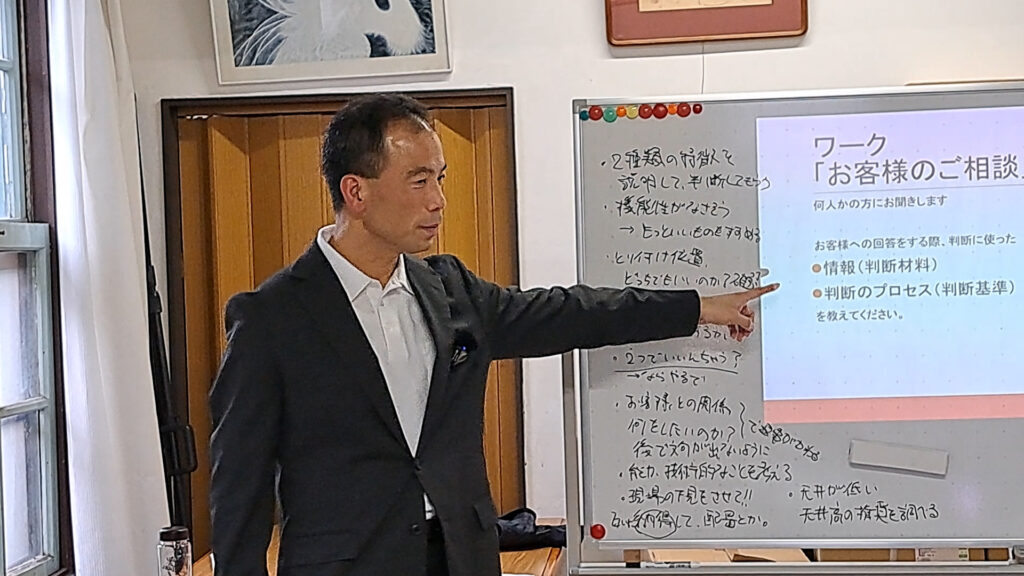 ・2種類の特徴を
説明して、判断してもらう
・機能性がなさそう
→もっといいものをすすめる
・とり付け位置
どっちでもいいのか?
・2つでいいんちゃう?
→ならやるで
・お客様との関係
何をしたいのか?
後で文句が出ないように
・能力、技術的なことを考える
・現場の下見をさせて!!
納得して、配置とか。
・天井が低い
天井高の推奨を調べる
ワーク
「お客様のご相談」
何人かの方にお聞きします
お客様への回答をする際、判断に使った
●情報(判断材料)
●判断のプロセス(判断基準)
を教えてください。